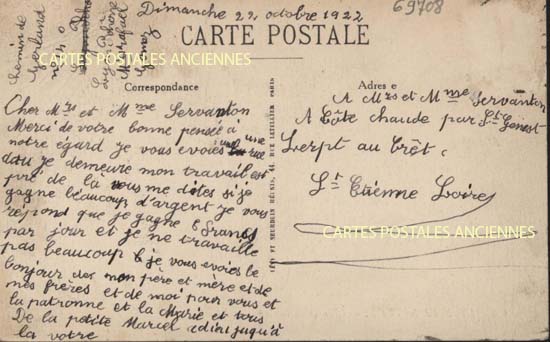 Dimanche 22, octobre 1922
69708
CARTE POSTALE
chemin de
Gerland
CARTES POSTALES ANCIENNES
Correspondance
Adresse
LEVY ET NEURDEIN RÉUNIS, 44, RUE LETELLIER, PARIS
Cher Mrs et Mme Servanton
Merci de votre bonne pensée a
notre égard je vous evoies une vue
dou je demeure mon travail est
pré de la vous me dites si je
gagne beaucoup d'argent je vous
répond que je gagne 6 francs
par jour et je ne travaille
pas beaucoup je vous evoies le
bonjour des mon père et mère et de
mes frères et de moi pour vous et
la patronne et la Marie et tous
De la petite Marcel jusqu'à
la votre
A Mrs et Mme Servanton
A Côte chaude par St Genest
Lerpt au Crêt.
St Etienne Loire
CARTES POSTALES ANCIENNES